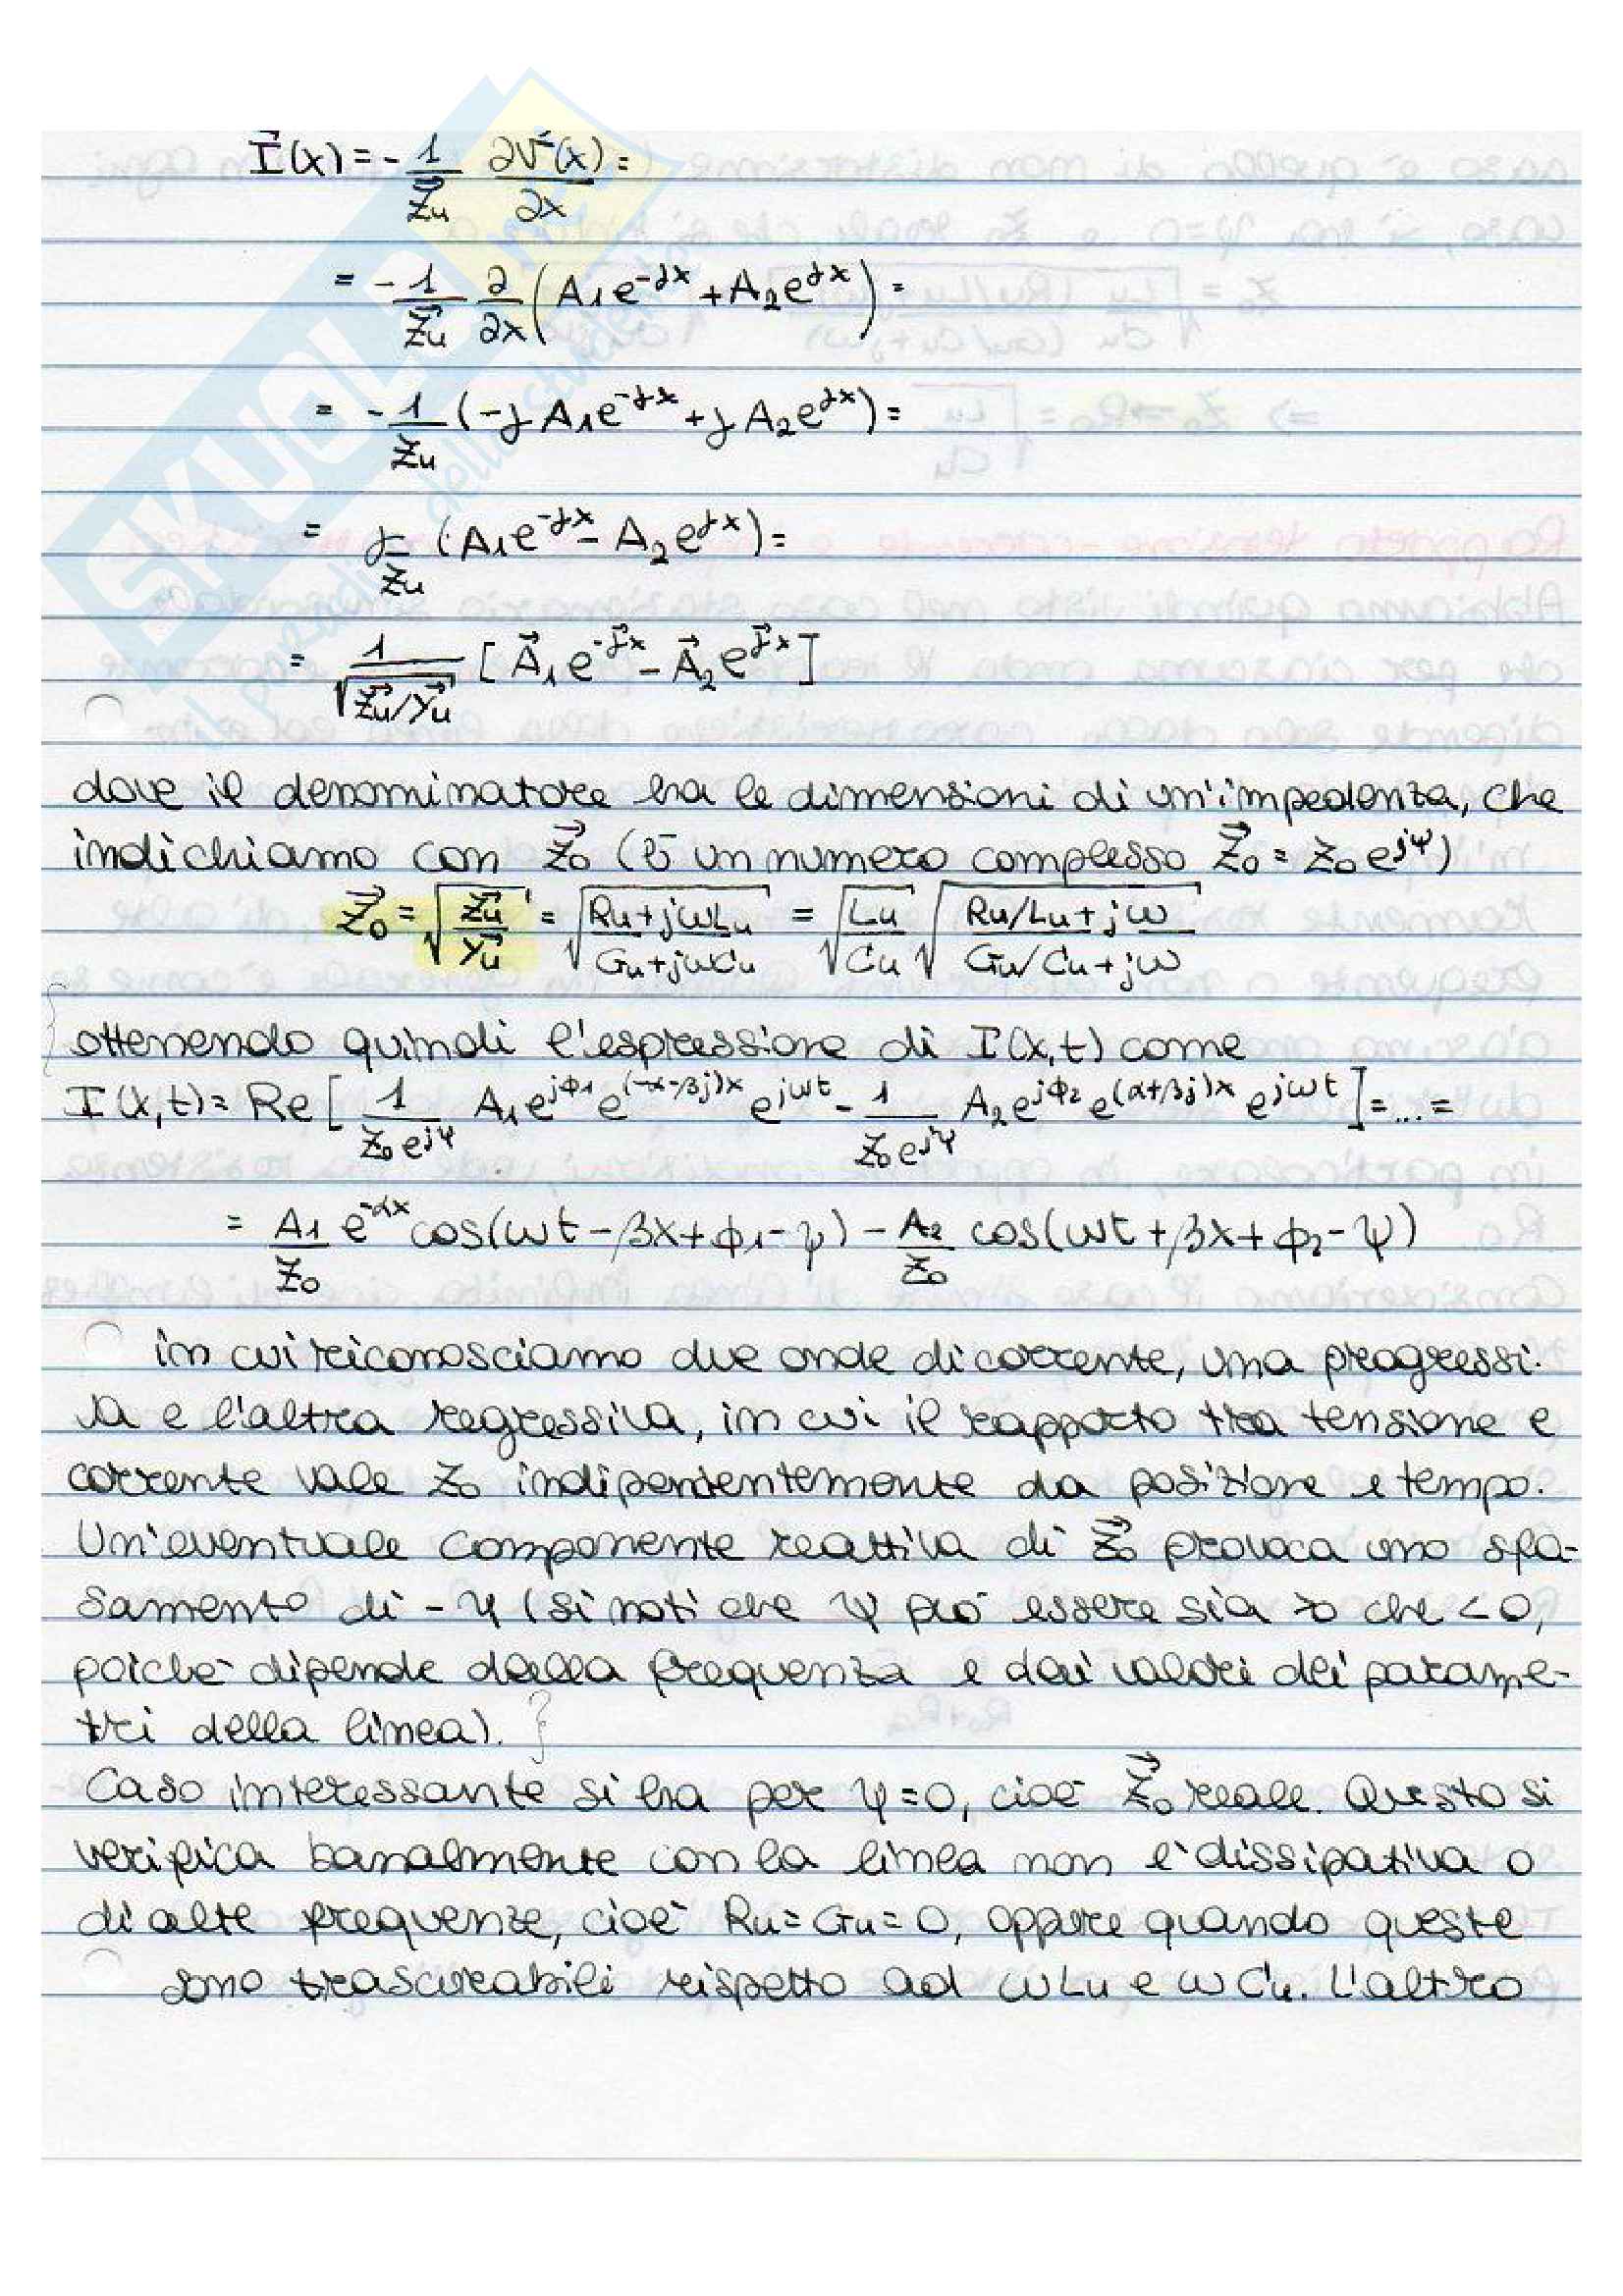 I⃗(x) = - 1/Z⃗u ∂V⃗(x)/∂x =
= - 1/Z⃗u ∂/∂x (A1 e^-γx + A2 e^γx) =
= - 1/Zu (-γ A1 e^-γx + γ A2 e^γx) =
= γ/Zu (A1 e^-γx - A2 e^γx) =
= 1/√(Z⃗u/Y⃗u) [A⃗1 e^-γ⃗x - A⃗2 e^γ⃗x]
dove il denominatore ha le dimensioni di un'impedenza, che
indichiamo con Z⃗0 (è un numero complesso Z⃗0 = Z0 e^jψ)
Z⃗0 = √(Z⃗u/Y⃗u) = √((Ru+jωLu)/(Gu+jωCu)) = √(Lu/Cu) √((Ru/Lu+jω)/(Gu/Cu+jω))
ottenendo quindi l'espressione di I(x,t) come
I(x,t) = Re [ 1/(Z0 e^jψ) A1 e^jϕ1 e^(-α-βj)x e^jωt - 1/(Z0 e^jψ) A2 e^jϕ2 e^(α+βj)x e^jωt ] = ... =
= A1/Z0 e^-αx cos(ωt - βx + ϕ1 - ψ) - A2/Z0 cos(ωt + βx + ϕ2 - ψ)
in cui riconosciamo due onde di corrente, una progressi-
va e l'altra regressiva, in cui il rapporto tra tensione e
corrente vale Z0 indipendentemente da posizione e tempo.
Un'eventuale componente reattiva di Z⃗0 provoca uno sfa-
samento di -ψ (si noti che ψ può essere sia >0 che <0,
poichè dipende dalla frequenza e dai valori dei parame-
tri della linea).
Caso interessante si ha per ψ=0, cioè Z⃗0 reale. Questo si
verifica banalmente con la linea non è dissipativa o
di alte frequenze, cioè Ru=Gu=0, oppure quando queste
sono trascurabili rispetto ad ωLu e ωCu. L'altro